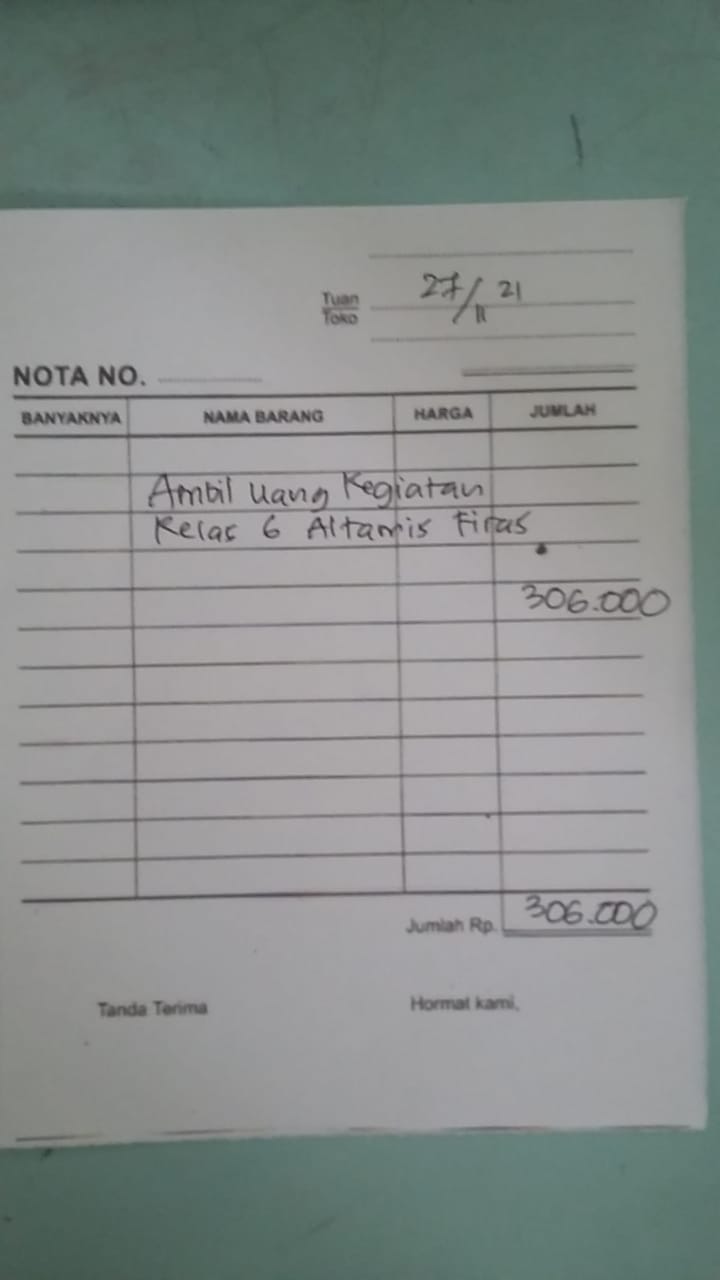 27/11 21
Tuan
Toko
NOTA NO.
BANYAKNYA NAMA BARANG HARGA JUMLAH
Ambil Uang Kegiatan
Kelas 6 Altamis Firas
306.000
Jumlah Rp. 306.000
Tanda Terima Hormat kami,